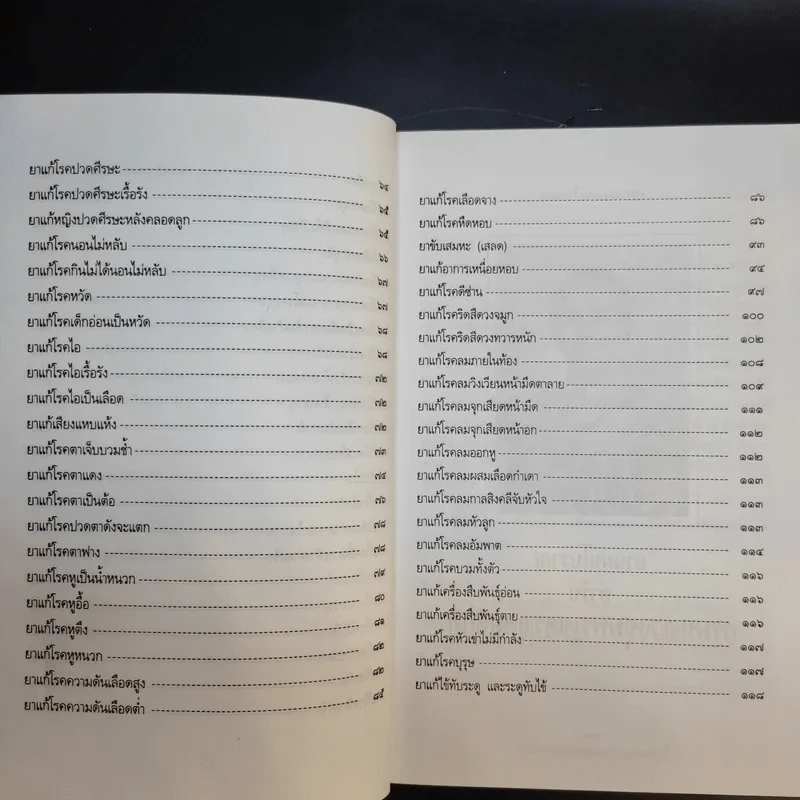 ยาแก้โรคปวดศีรษะ ๖๔
ยาแก้โรคปวดศีรษะเรื้อรัง ๖๕
ยาแก้หญิงปวดศีรษะหลังคลอดลูก ๖๕
ยาแก้โรคนอนไม่หลับ ๖๖
ยาแก้โรคกินไม่ได้นอนไม่หลับ ๖๗
ยาแก้โรคหวัด ๖๗
ยาแก้โรคเด็กอ่อนเป็นหวัด ๖๘
ยาแก้โรคไอ ๖๘
ยาแก้โรคไอเรื้อรัง ๗๒
ยาแก้โรคไอเป็นเลือด ๗๒
ยาแก้เสียงแหบแห้ง ๗๒
ยาแก้โรคตาเจ็บบวมช้ำ ๗๓
ยาแก้โรคตาแดง ๗๔
ยาแก้โรคตาเป็นต้อ ๗๖
ยาแก้โรคปวดตาดังจะแตก ๗๘
ยาแก้โรคตาฟาง ๗๘
ยาแก้โรคหูเป็นน้ำหนวก ๗๙
ยาแก้โรคหูอื้อ ๘๐
ยาแก้โรคหูตึง ๘๑
ยาแก้โรคหูหนวก ๘๒
ยาแก้โรคความดันเลือดสูง ๘๒
ยาแก้โรคความดันเลือดต่ำ ๘๕
ยาแก้โรคเลือดจาง ๘๖
ยาแก้โรคหืดหอบ ๘๖
ยาขับเสมหะ (เสลด) ๙๓
ยาแก้อาการเหนื่อยหอบ ๙๔
ยาแก้โรคดีซ่าน ๙๗
ยาแก้โรคริดสีดวงจมูก ๑๐๐
ยาแก้โรคริดสีดวงทวารหนัก ๑๐๒
ยาแก้โรคลมภายในท้อง ๑๐๘
ยาแก้โรคลมวิงเวียนหน้ามืดตาลาย ๑๐๙
ยาแก้โรคลมจุกเสียดหน้ามืด ๑๑๑
ยาแก้โรคลมจุกเสียดหน้าอก ๑๑๒
ยาแก้โรคลมออกหู ๑๑๒
ยาแก้โรคลมผสมเลือดกำเดา ๑๑๓
ยาแก้โรคลมกาลสิงคลีจับหัวใจ ๑๑๓
ยาแก้โรคลมหัวลูก ๑๑๓
ยาแก้โรคลมอัมพาต ๑๑๔
ยาแก้โรคบวมทั้งตัว ๑๑๖
ยาแก้เครื่องสืบพันธุ์อ่อน ๑๑๖
ยาแก้เครื่องสืบพันธุ์ตาย ๑๑๖
ยาแก้โรคหัวเข่าไม่มีกำลัง ๑๑๗
ยาแก้โรคบุรุษ ๑๑๗
ยาแก้ไข้ทับระดู และระดูทับไข้ ๑๑๘